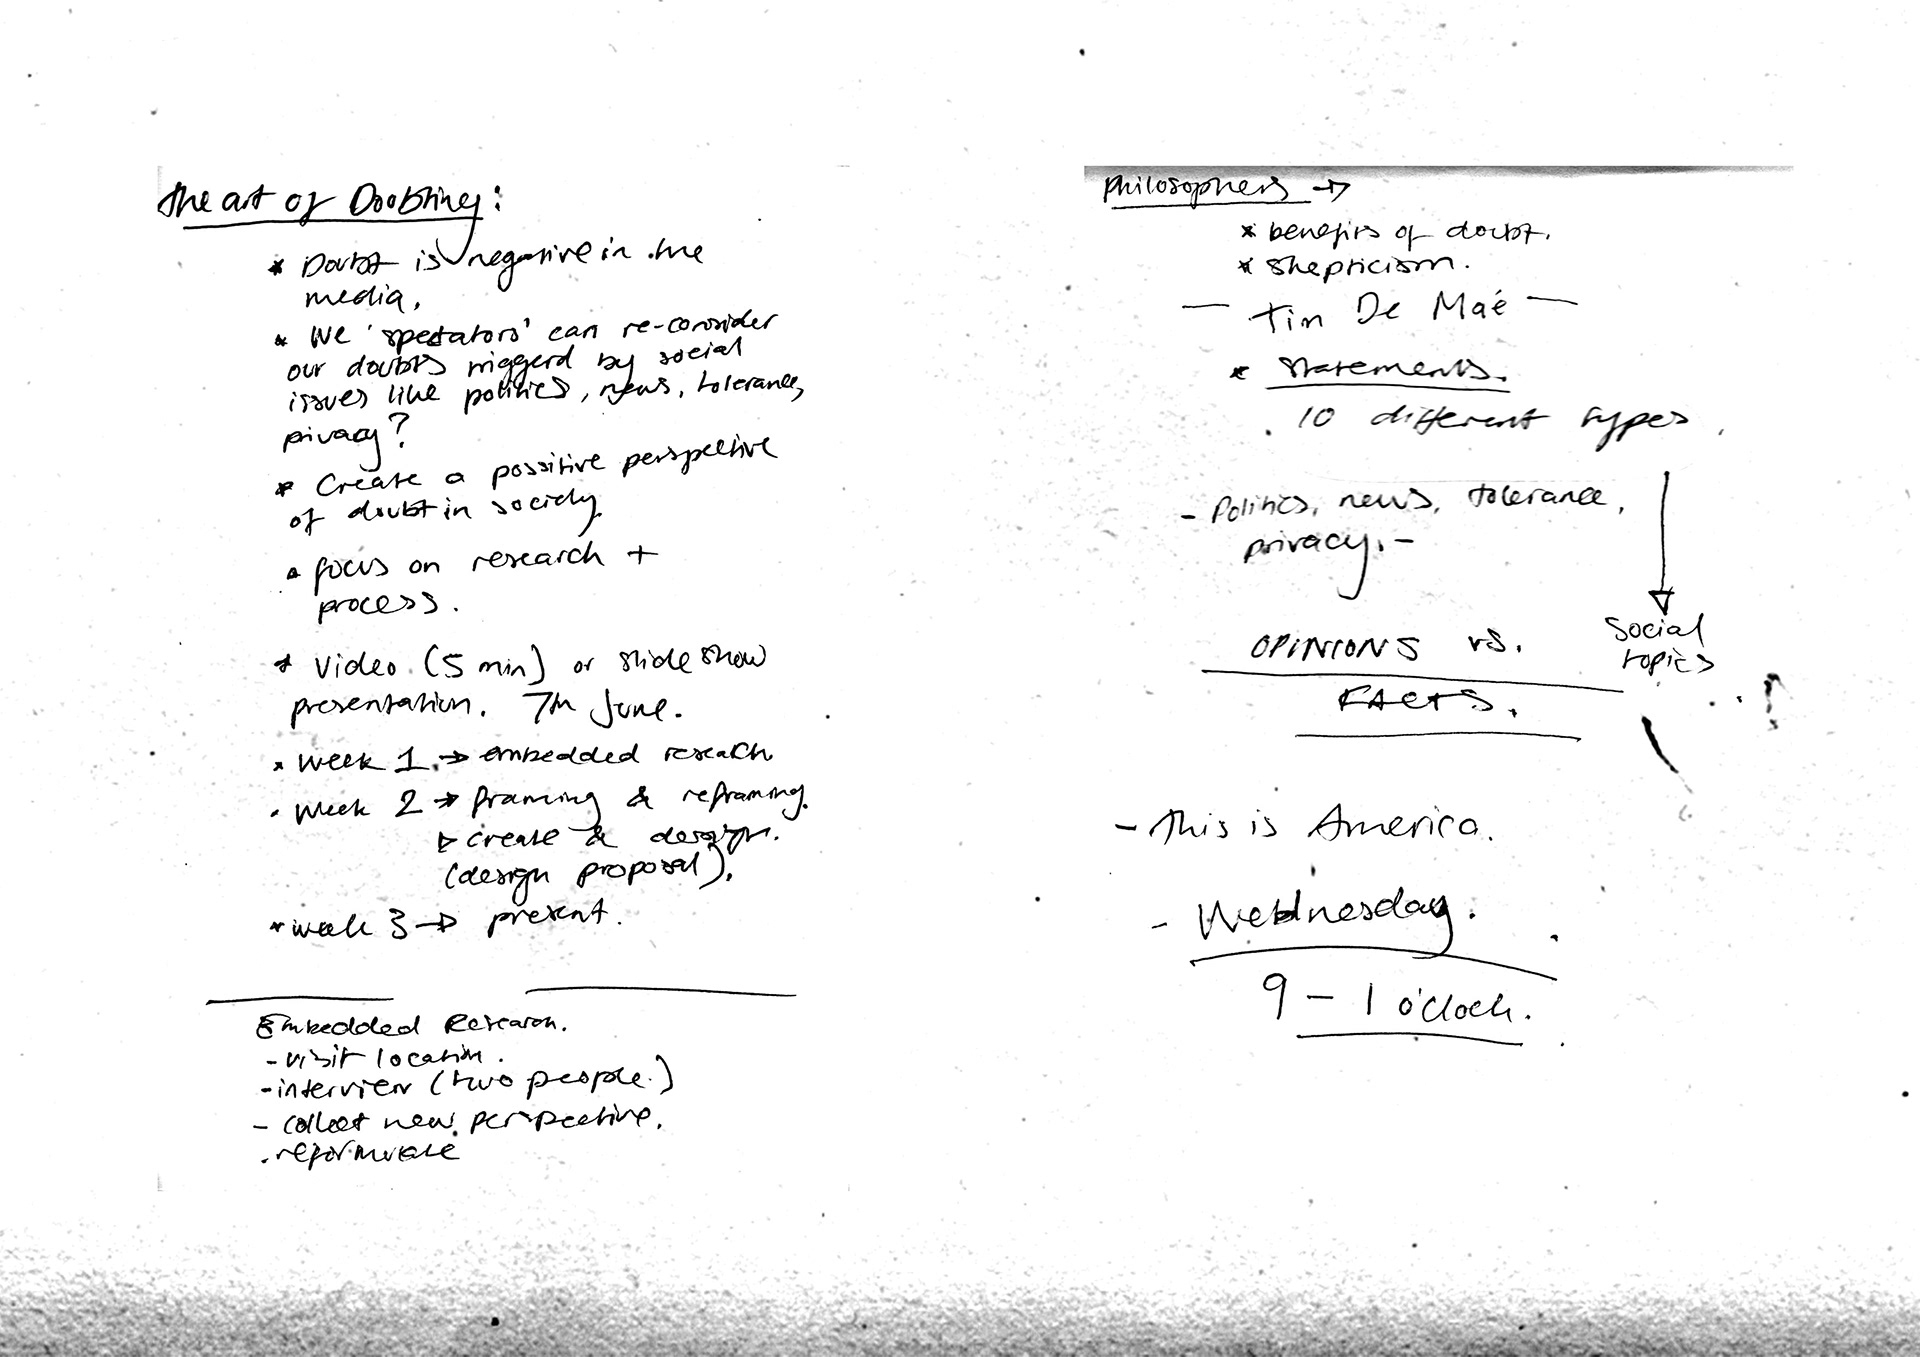 The art of Doubting:
* Doubt is negative in the
media.
* We 'spectators' can re-consider
our doubts triggerd by social
issues like politics, news, tolerance,
privacy?
* Create a possitive perspective
of doubt in society.
* focus on research +
process.
* Video (5 min) or slide show
presentation. 7th June.
* week 1. → embedded research
. week 2 → framing & reframing.
▷ create & design.
(design proposal).
* week 3 → present.
Embedded Research.
- visit location.
- interview (two people.)
- collect new perspective.
. reformulate
Philosophers →
* benefits of doubt.
* skepticism.
— Tim De Maé —
* statements.
. 10 different types.
- Politics, news, tolerance,
privacy. -
social
topics
OPINIONS vs.
FACTS.
- This is America.
- Wednesday.
9 - 1 o'clock.